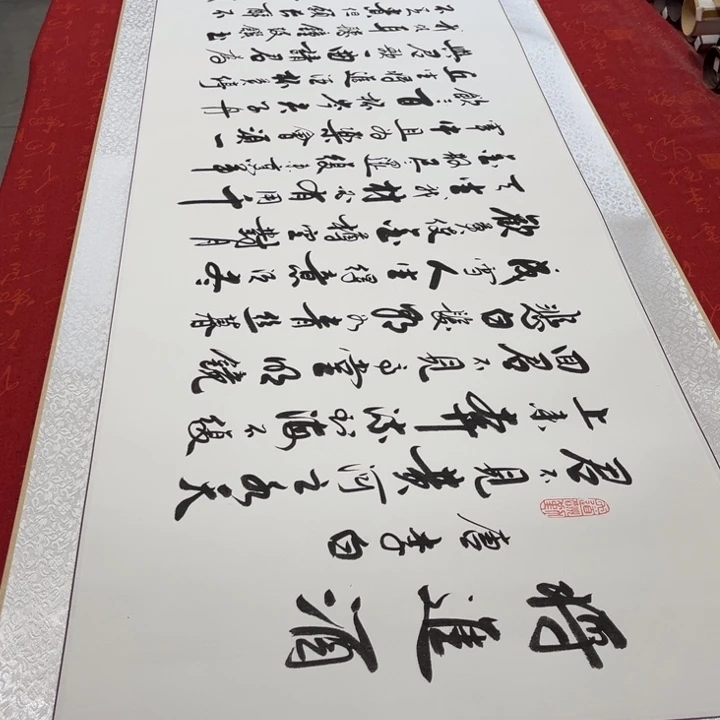 將進酒
唐李白
君不見黃河之水天
上來奔流到海不復
回君不見高堂明鏡
悲白髮朝如青絲暮
成雪人生得意須盡
歡莫使金樽空對月
天生我材必有用千
金散盡還復來烹羊
宰牛且為樂會須一
飲三百杯岑夫子丹
丘生將進酒杯莫停
與君歌一曲請君為
不足貴但願長醉不